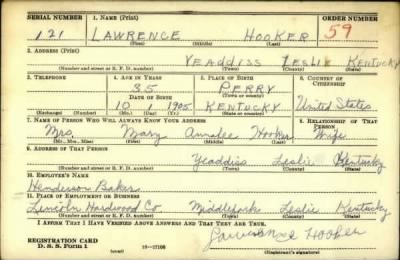 SERIAL NUMBER 1. NAME (Print) ORDER NUMBER
121 LAWRENCE HOOKER 59
(First) (Middle) (Last)
2. ADDRESS (Print)
YEADDISS LESLIE KENTUCKY
(Number and street or R. F. D. number) (Town) (County) (State)
3. TELEPHONE 4. AGE IN YEARS 5. PLACE OF BIRTH 6. COUNTRY OF CITIZENSHIP
35 PERRY
(Town or county)
DATE OF BIRTH
10 1 1905 KENTUCKY United States
(Exchange) (Number) (Mo.) (Day) (Yr.) (State or country)
7. NAME OF PERSON WHO WILL ALWAYS KNOW YOUR ADDRESS 8. RELATIONSHIP OF THAT PERSON
Mrs. Mary Annalee Hooker Wife
(Mr., Mrs., Miss) (First) (Middle) (Last)
9. ADDRESS OF THAT PERSON
Yeaddiss Leslie Kentucky
(Number and street or R. F. D. number) (Town) (County) (State)
10. EMPLOYER'S NAME
Henderson Baker
11. PLACE OF EMPLOYMENT OR BUSINESS
Lincoln Hardwood Co. Middlefork Leslie Kentucky
(Number and street or R. F. D. number) (Town) (County) (State)
I AFFIRM THAT I HAVE VERIFIED ABOVE ANSWERS AND THAT THEY ARE TRUE.
Lawrence Hooker
REGISTRATION CARD
D. S. S. Form 1 (over) 16—17105 (Registrant's signature)